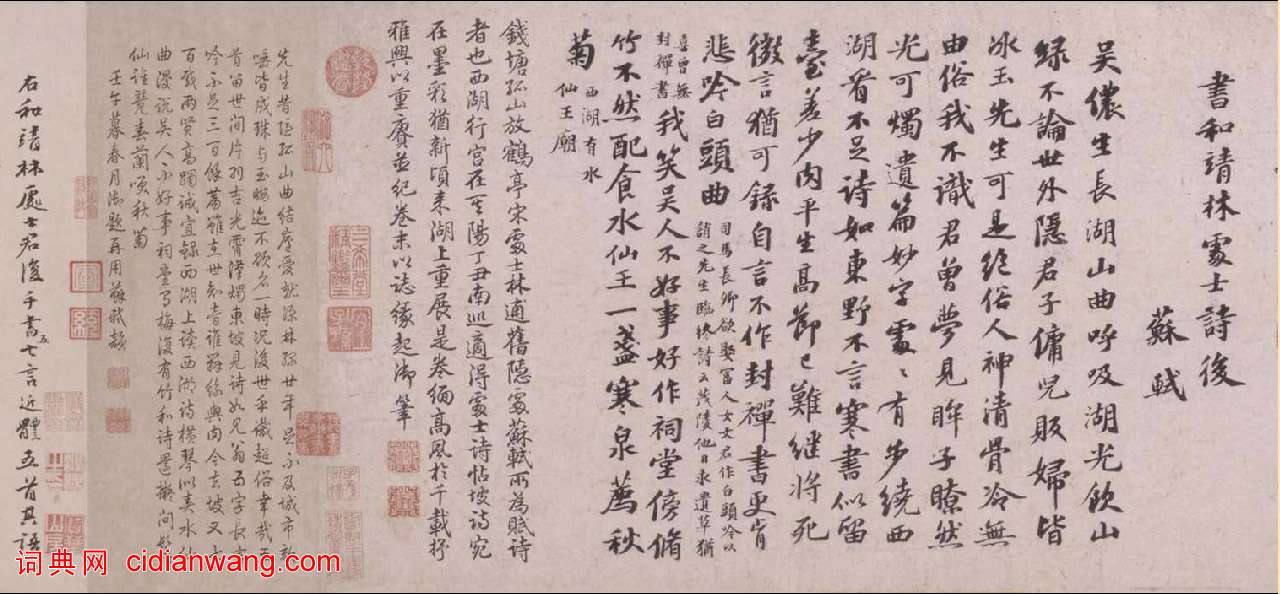 書和靖林處士詩後
蘇軾
吳儂生長湖山曲呼吸湖光飲山
綠不論世外隱君子傭兒販婦皆
冰玉先生可是絕俗人神清骨冷無
由俗我不識君曾夢見眸子瞭然
光可燭遺篇妙字處〻有步繞西
湖看不足詩如東野不言寒書似留
臺差少肉平生高節已難繼將死
微言猶可錄自言不作封禪書更肯
悲吟白頭曲
司馬長卿欲娶富人女文君作白頭吟以
誚之先生臨終詩云茂陵他日求遺草猶
喜曾無
封禪書
我笑吳人不好事好作祠堂傍脩
竹不然配食水仙王一盞寒泉薦秋
菊
西湖有水
仙王廟
錢塘孤山放鶴亭宋處士林逋舊隱處蘇軾所為賦詩
者也西湖行宮在其陽丁丑南巡適得處士詩帖坡詩宛
在墨彩猶新頃來湖上重展是卷緬高風於千載抒
雅興以重賡並紀卷末以誌緣起御筆
先生昔隱孤山曲結廬愛就深林綠廿年足不及城市欬
唾皆成珠與玉 不欲名一時況復世 超俗幸哉五
昔留世間片羽吉光霄漢燭東坡見詩如見翁五字長言
吟不足三百餘篇
百載兩賢高躅誠宜錄西湖上讀西湖詩橫琴以奏水仙
曲漫說吳人不好事祠 梅復有竹和詩還擬問髯
仙 蘭 秋菊
壬午暮春月御題再用蘇軾韻
右和靖林處士君復手書七言近體五首其語
词典网 cidianwang.com